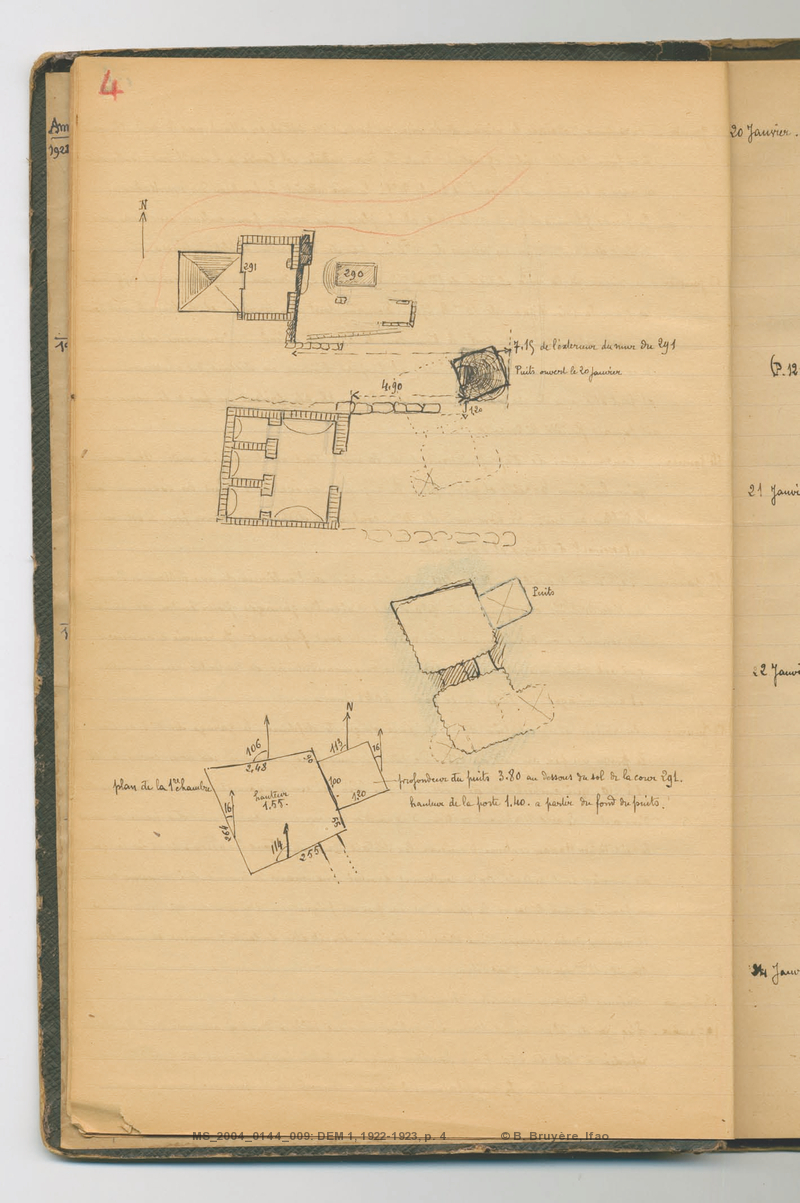 4
Am
1922
20 Janvier.
N
291
290
7.15 de l'exterieur du mur du 291
Puits ouvert le 20 janvier
(P. 12
4.90
1.20
21 Janvi
Puits
22 Janvi
N
106
113
16
2,43
100
plan de la 1ère chambre
profondeur du puits 3.80 au dessous du sol de la cour 291.
hauteur
1.55.
120
hauteur de la porte 1.40. a partir du fond du puits.
16
264
114
255
Janv
MS_2004_0144_009: DEM 1, 1922-1923, p. 4 © B. Bruyère, Ifao